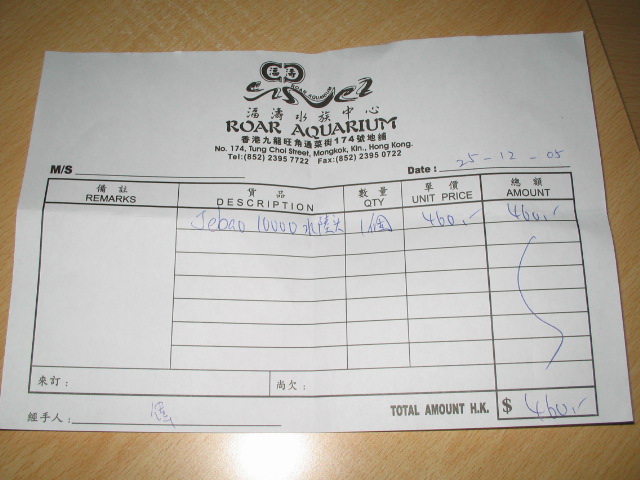 ROAR AQUARIUM
福濤水族中心
ROAR AQUARIUM
香港九龍旺角通菜街174號地舖
No. 174, Tung Choi Street, Mongkok, Kln., Hong Kong.
Tel:(852) 2395 7722 Fax:(852) 2395 0772
M/S
Date : 25-12-05
備註 貨品 數量 單價 總額
REMARKS DESCRIPTION QTY UNIT PRICE AMOUNT
Jebao 10000 水陸 1個 460.- 460.-
來訂: 尚欠:
經手人: TOTAL AMOUNT H.K. $ 460.-